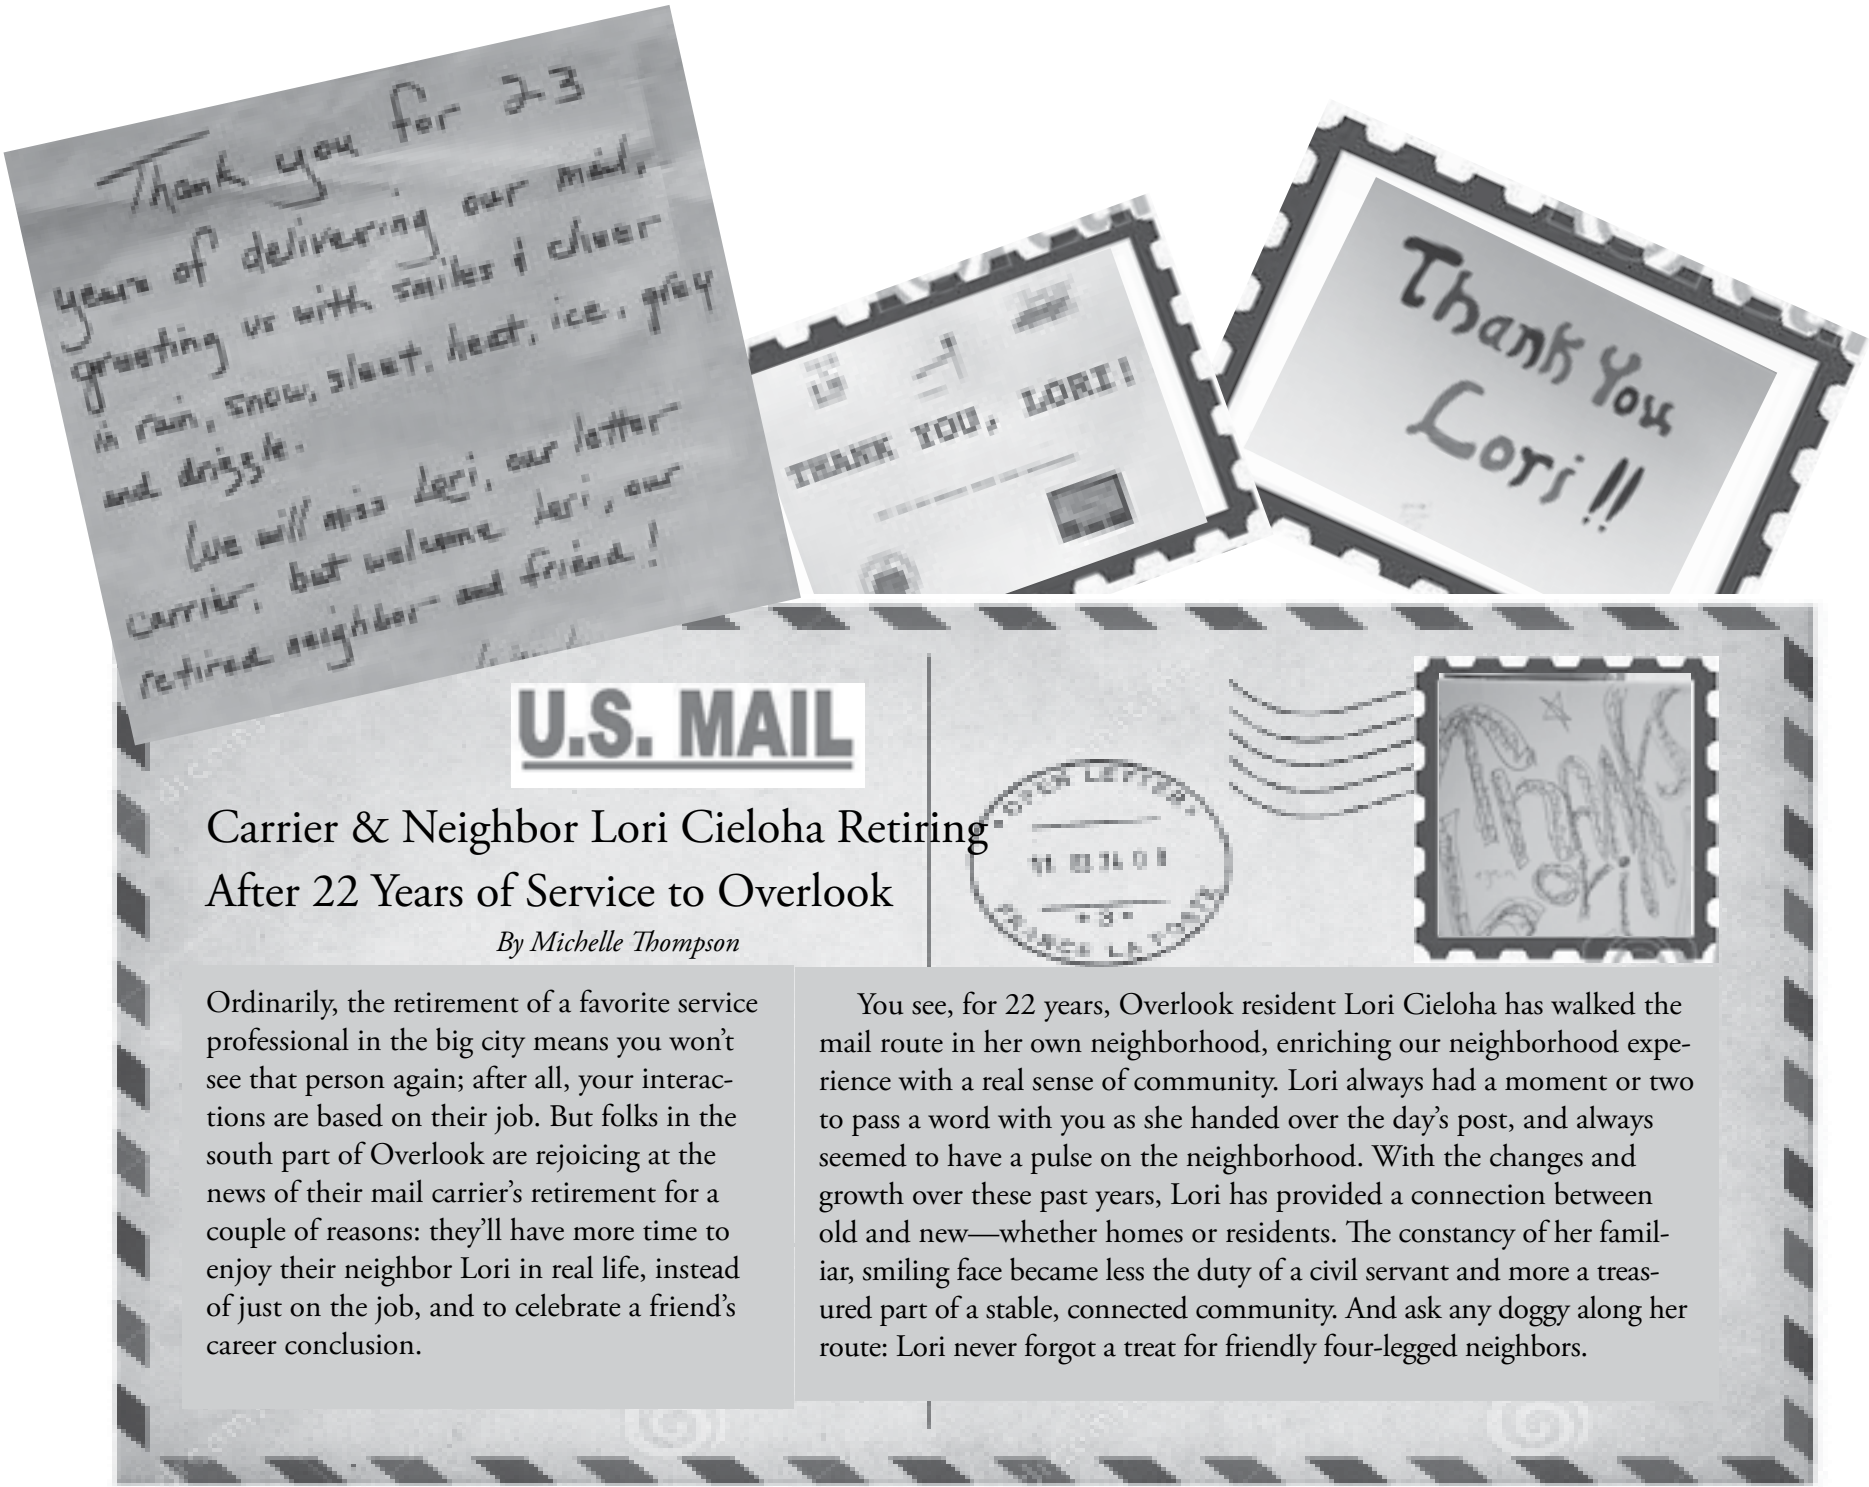 Thank you for 23
years of delivering our mail,
greeting us with smiles & cheer
in rain, snow, sleet, heat, ice, gray
and drizzle.
We will miss Lori, our letter
carrier, but welcome Lori, our
retired neighbor and friend!
THANK YOU, LORI!
Thank You
Lori!!
U.S. MAIL
OPEN LETTER
FRANCE LA POSTE
Thank
Lori
Carrier & Neighbor Lori Cieloha Retiring
After 22 Years of Service to Overlook
By Michelle Thompson
Ordinarily, the retirement of a favorite service
professional in the big city means you won’t
see that person again; after all, your interac-
tions are based on their job. But folks in the
south part of Overlook are rejoicing at the
news of their mail carrier’s retirement for a
couple of reasons: they’ll have more time to
enjoy their neighbor Lori in real life, instead
of just on the job, and to celebrate a friend’s
career conclusion.
You see, for 22 years, Overlook resident Lori Cieloha has walked the
mail route in her own neighborhood, enriching our neighborhood expe-
rience with a real sense of community. Lori always had a moment or two
to pass a word with you as she handed over the day’s post, and always
seemed to have a pulse on the neighborhood. With the changes and
growth over these past years, Lori has provided a connection between
old and new—whether homes or residents. The constancy of her famil-
iar, smiling face became less the duty of a civil servant and more a treas-
ured part of a stable, connected community. And ask any doggy along her
route: Lori never forgot a treat for friendly four-legged neighbors.